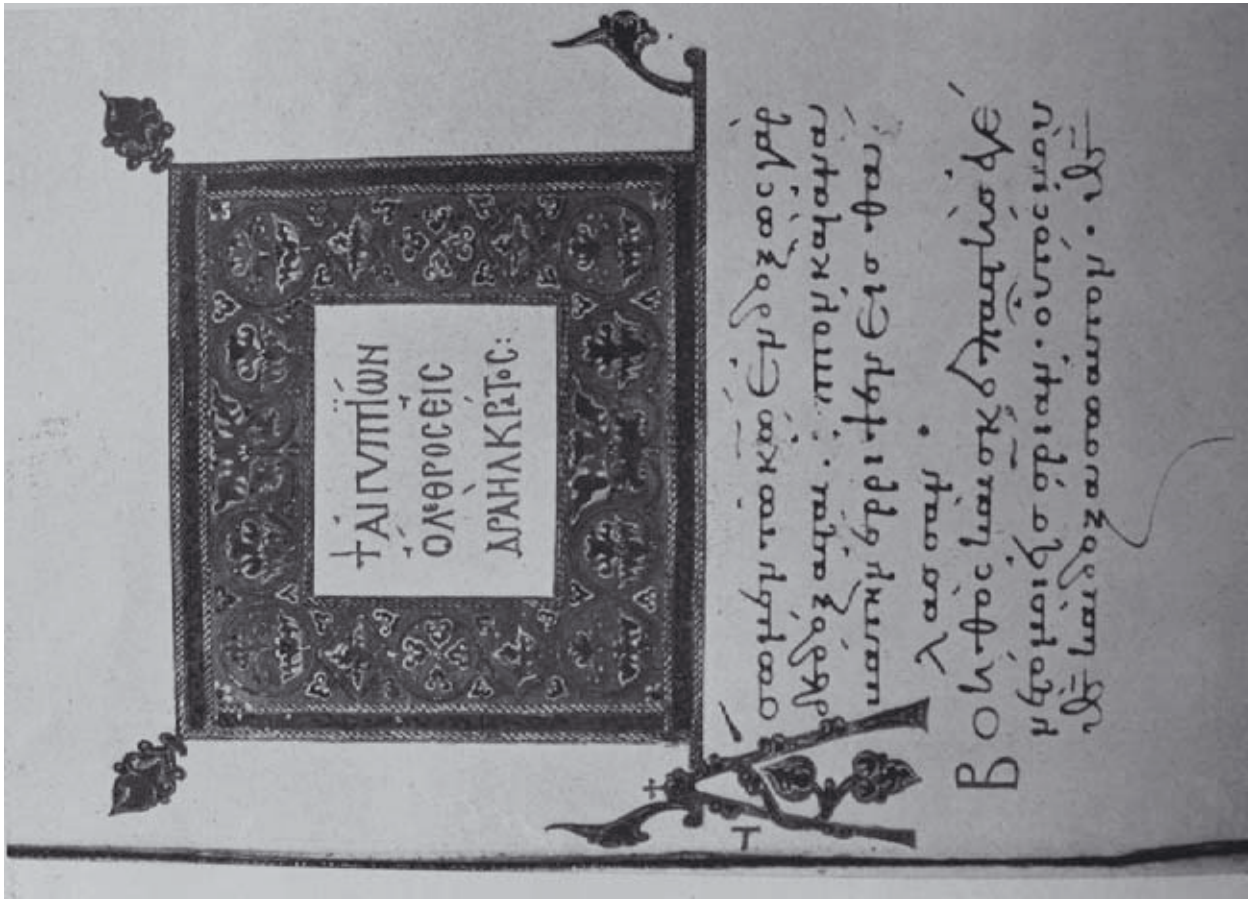 † ΑΙΓΥΠΤΙΩΝ
ΟΛΕΘΡΟCΕΙC
ΔΡΑΗΛΚΡΑΤΟC:
Ἄσωμεν τῷ κῷ ἐνδόξως γὰρ
δεδόξασται· ἵππον καὶ ἀνα
βάτην ἔρριψεν εἰς θά
λασσαν·
Βοηθὸς καὶ σκεπαστὴς ἐγέ
νετό μοι εἰς σριαν· οὗτός μου
θς καὶ δοξάσω αὐτόν· θς